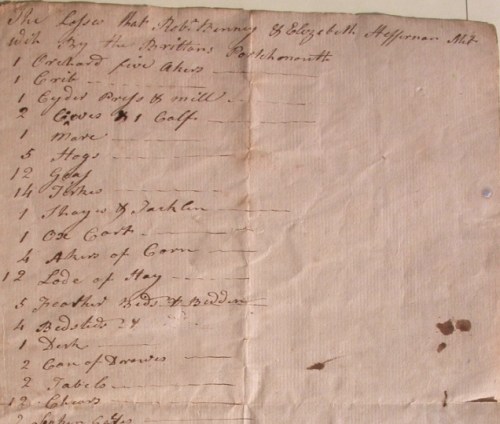 The Lossw that Robt. Benny & Elizebeth Hefferman Met
with By the Brittans Portchmouth
1 Orchard five Akers
1 Crib
1 Cyder Press & mill
2 Cows & 1 Calf
1 Mare
5 Hogs
12 Geas
14 Torkes
1 Shayw & Tacklin
1 Ox Cart
4 Akers of Corn
12 Lode of Hay
5 Feather Beds & Beddin
4 Bedsteds 24
1 Desk
2 Cas of Drowes
2 Tabels
12 Chears
2